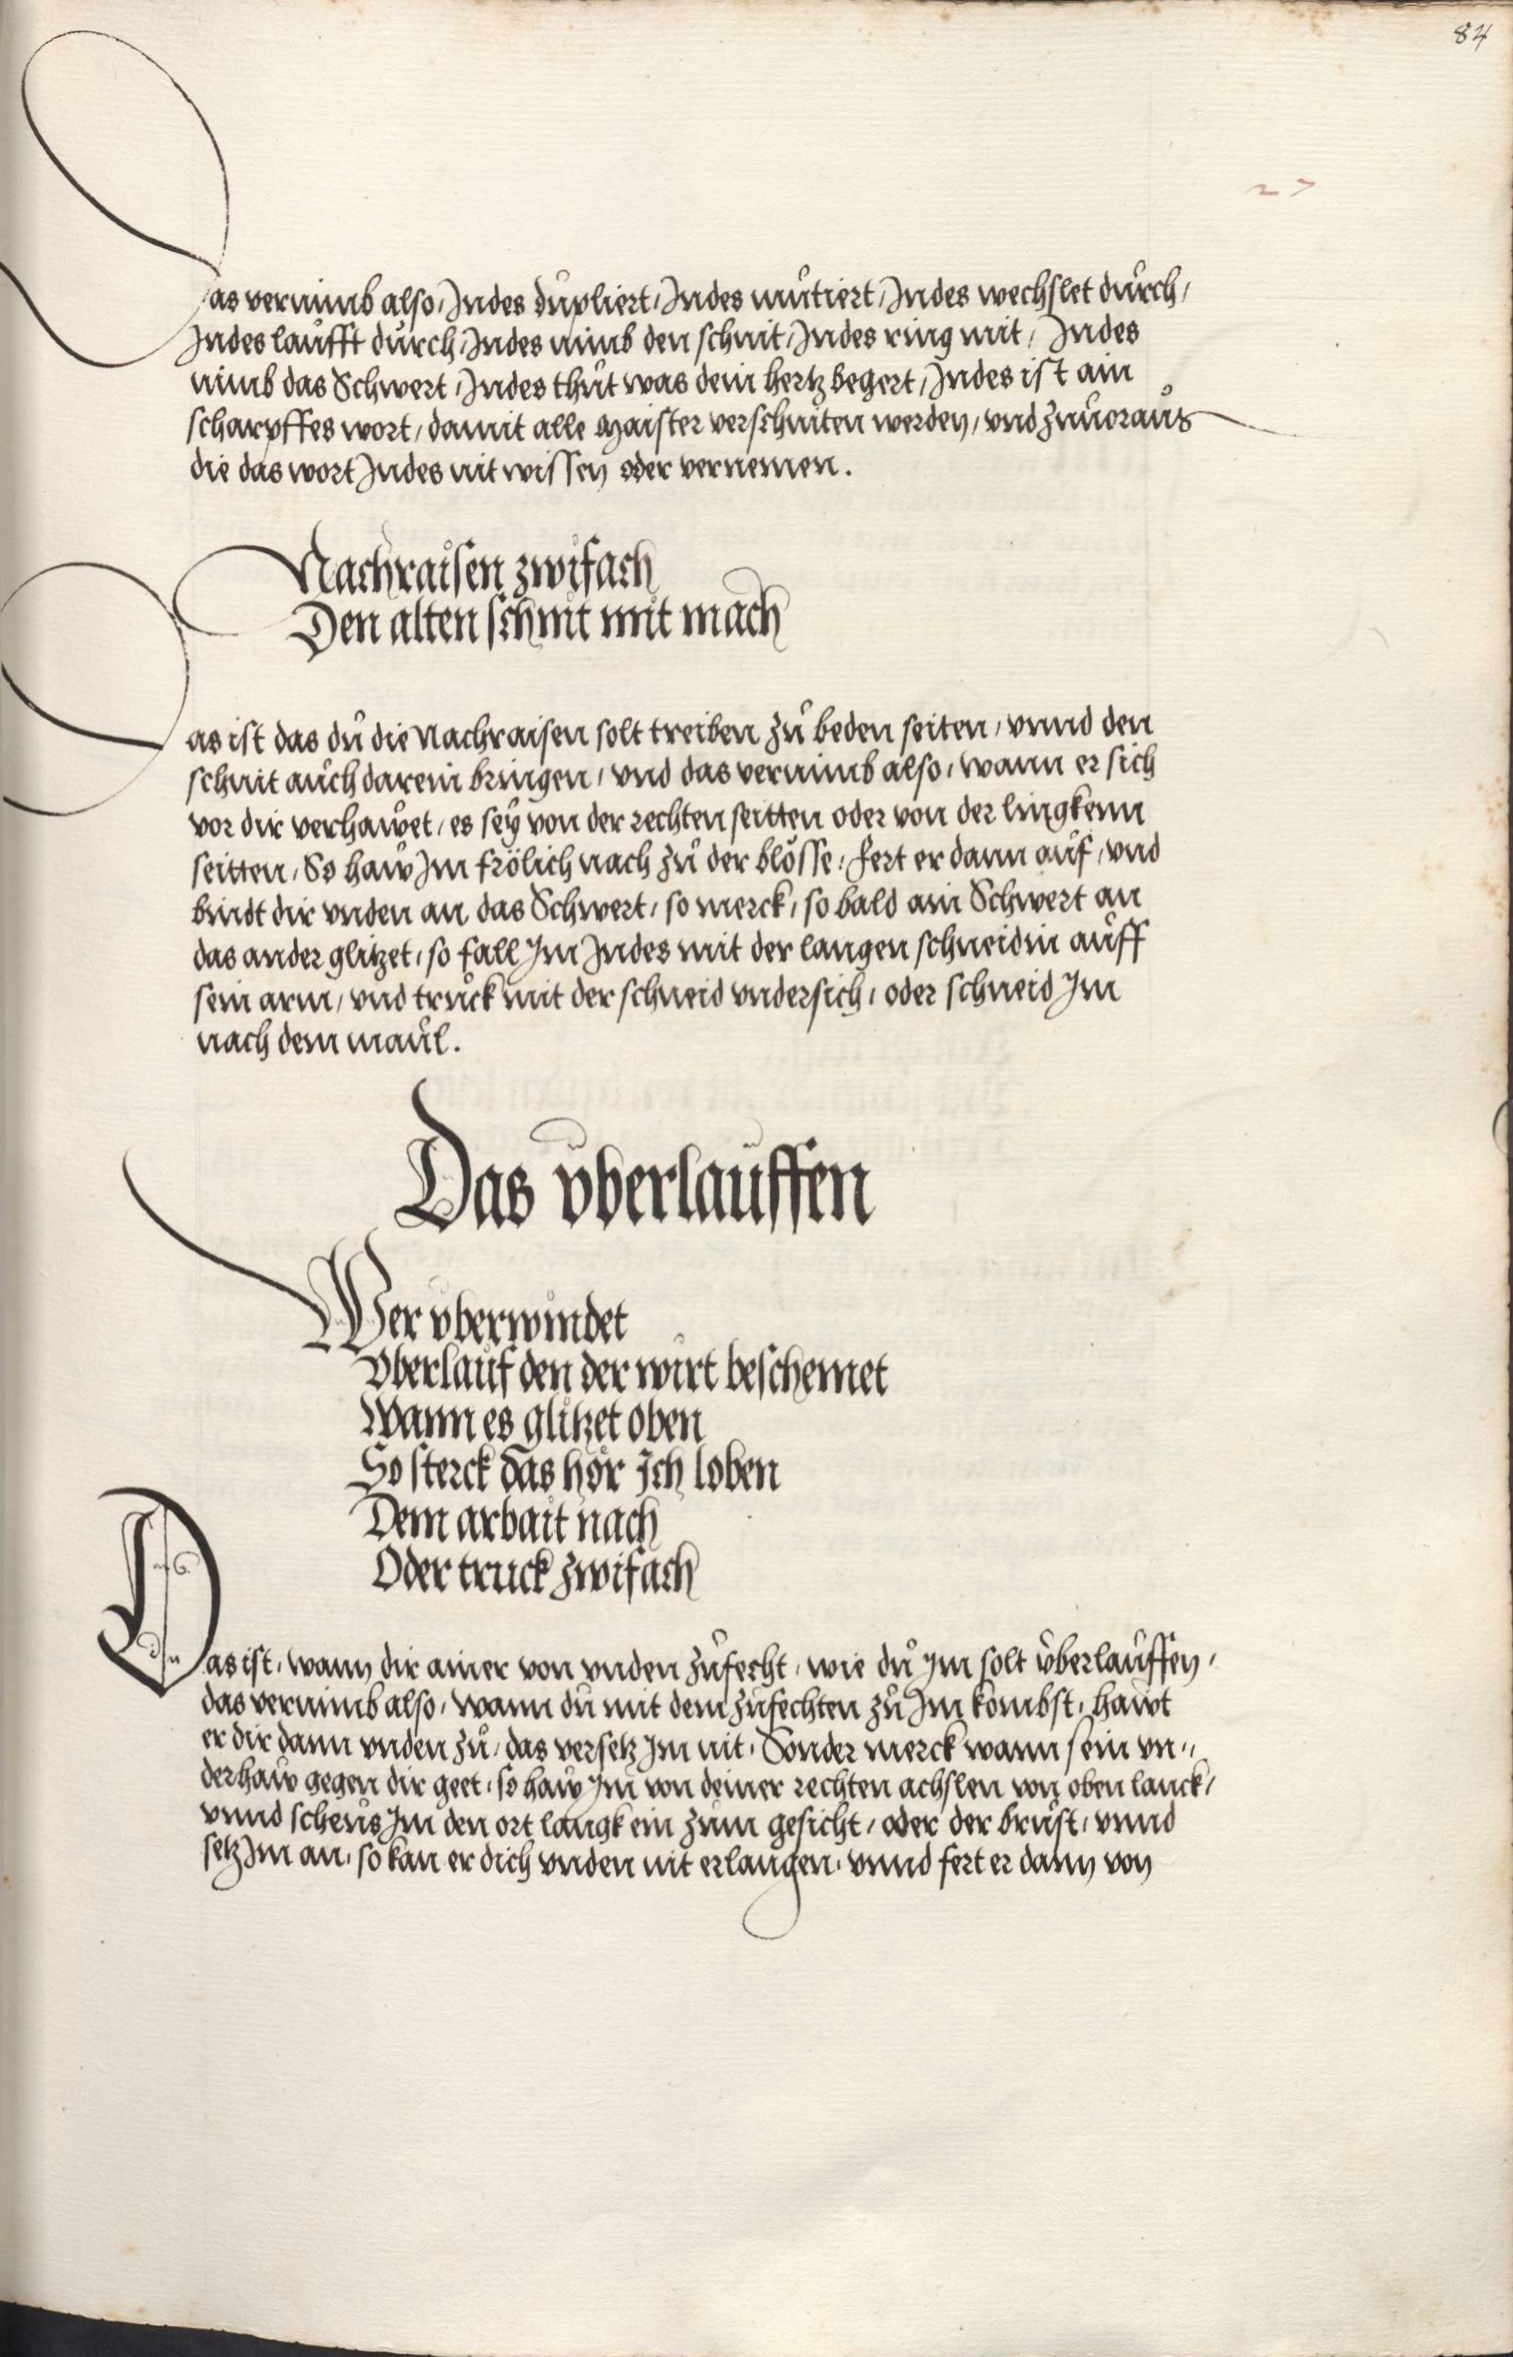 84
27
as vernimb also, Indes dupliert, Indes mutiert, Indes wechslet durch,
Indes laufft durch, Indes nimb den schnit, Indes ring mit, Indes
nimb das Schwert, Indes thut was dein hertz begert, Indes ist ain
scharpffes wort, damit alle Maister verschniten werden, vnd zuuoraus
die das wort Indes nit wissen oder vernemen.
Nachraisen zwifach
Den alten schnit mit mach
as ist das du die Nachraisen solt treiben zu beden seiten, vnnd den
schnit auch darein bringen, vnd das vernimb also, wann er sich
vor dir verhawet, es sey von der rechten seitten oder von der lingkenn
seitten, So haw Im frölich nach zu der blösse, fert er dann auf, vnd
bindt dir vnden an das Schwert, so merck, so bald ain Schwert an
das ander glitzet, so fall Im Indes mit der langen schneidin auff
sein arm, vnd truck mit der schneid vndersich, oder schneid Im
nach dem maul.
Das vberlauffen
Wer vberwindet
Vberlauf den der wirt beschemet
Wann es glitzet oben
So sterck das hör Ich loben
Dem arbait nach
Oder truck zwifach
Das ist, wann dir ainer von vnden zufecht, wie du Im solt vberlauffen,
das vernimb also, wann du mit dem zufechten zu Im kombst, hawt
er dir dann vnden zu, das versetz Im nit, Sonder merck wann sein vn„
derhaw gegen dir geet, so haw Im von deiner rechten achslen von oben lanck,
vnnd scheus Im den ort langk ein zum gesicht, oder der brust, vnnd
setz Im an, so kan er dich vnden nit erlangen, vnnd fert er dann von